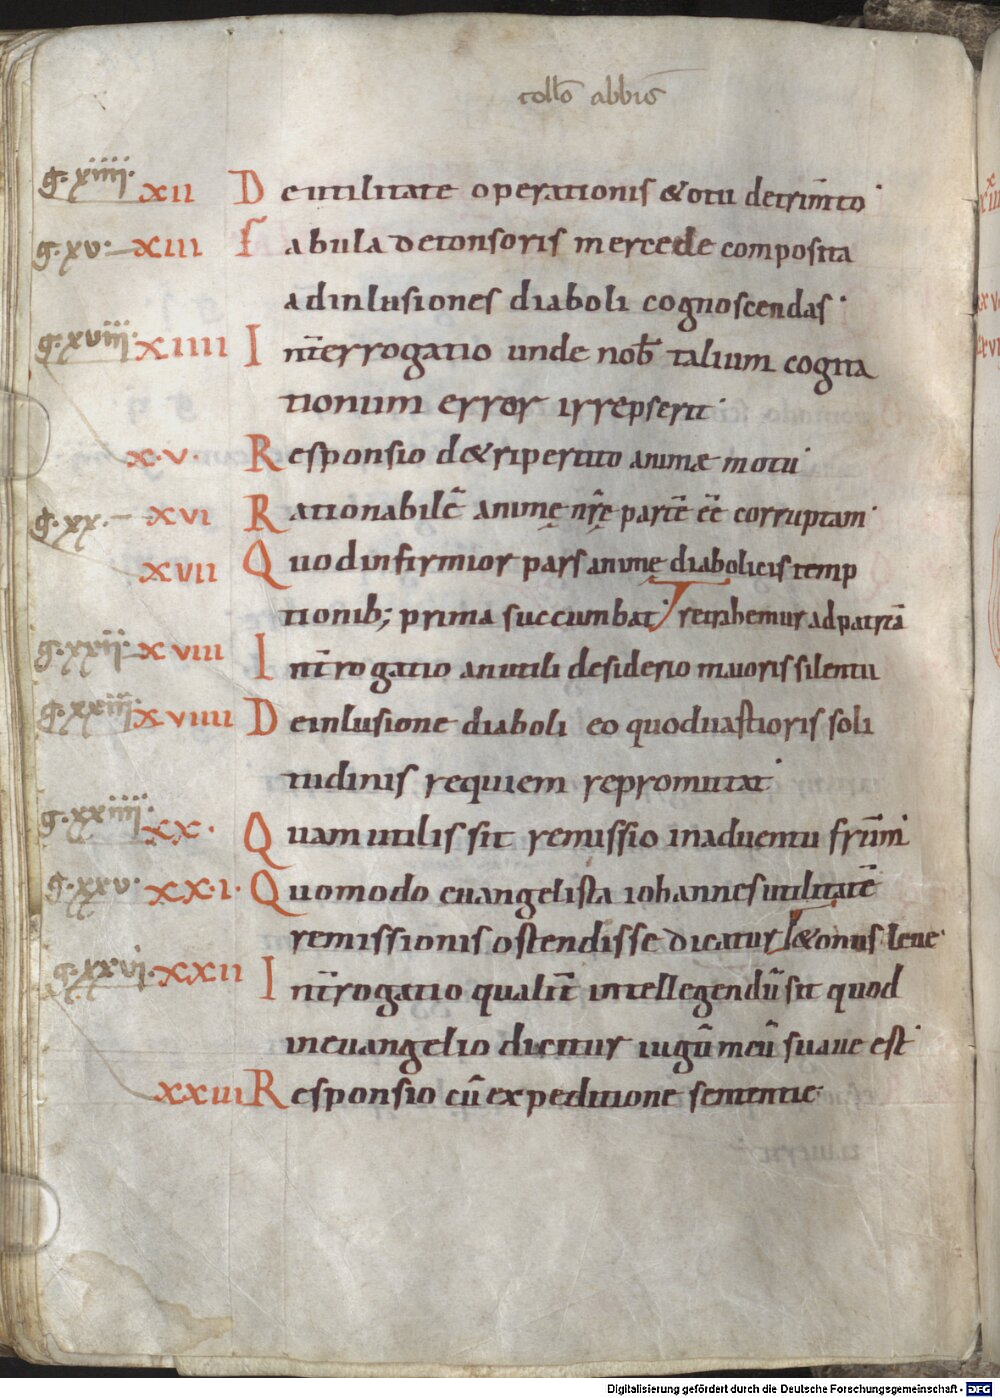 collo abbis
g. xiiii. XII De utilitate operationis & otii detrim̄to
g. xv. XIII Fabula de tonsoris mercede composita
ad inlusiones diaboli cognoscendas
g. xviii. XIIII Int̄errogatio unde nob̄ talium cogita
tionum error irrepserit
XV. Responsio de tripertito animæ motu
g. xx. XVI Rationabilē animę nr̄ę partē eē corruptam
XVII Quod infirmior pars animę diabolicis temp
tionib; prima succumbat retrahemur ad patriā
g. xxii. XVIII Int̄rogatio an utili desiderio maioris silentii
g. xxiii. XVIIII De inlusione diaboli eo quod uastioris soli
tudinis requiem repromittat
g. xxiiii. XX. Quam utilis sit remissio in aduentu fr̄um
g. xxv. XX.I. Quomodo euangelista iohannes utilitatē
remissionis ostendisse dicatur & onus leue
g. xxvi. XXII Int̄rogatio qualit̄ intellegendū sit quod
in euangelio dicitur iugū meū suaue est
XXIII Responsio cū expeditione sententie
Digitalisierung gefördert durch die Deutsche Forschungsgemeinschaft - DFG